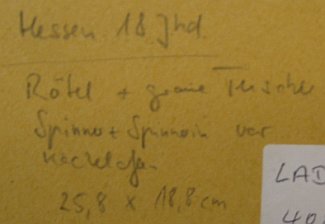 Hessen 18 Jhd.
Rötel + graue Tusche
Spinner + Spinnerin vor
Kachelofen
25,8 x 18,8 cm
LAD
40